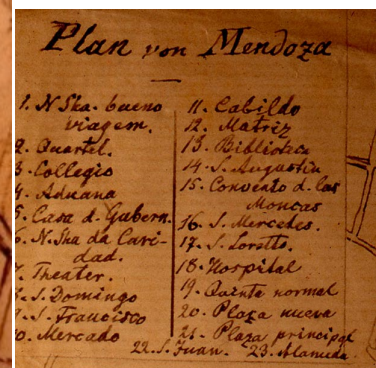 Plan von Mendoza
1. N Sha. bueno
viagem.
2. Quartel.
3. Collegio
4. Aduana
5. Casa d. Gubern.
6. N. Sha da Cari-
dad.
7. Theater.
8. S. Domingo
9. S. Francisco
10. Mercado
11. Cabildo
12. Matriz
13. Biblioteca
14. S. Augustin
15. Convento d. las
Moncas
16. S. Mercedes.
17. S. Loretto.
18. Hospital
19. Quinta normal
20. Plaza nueva
21. Plaza principal
22. S. Juan. 23. Alameda.